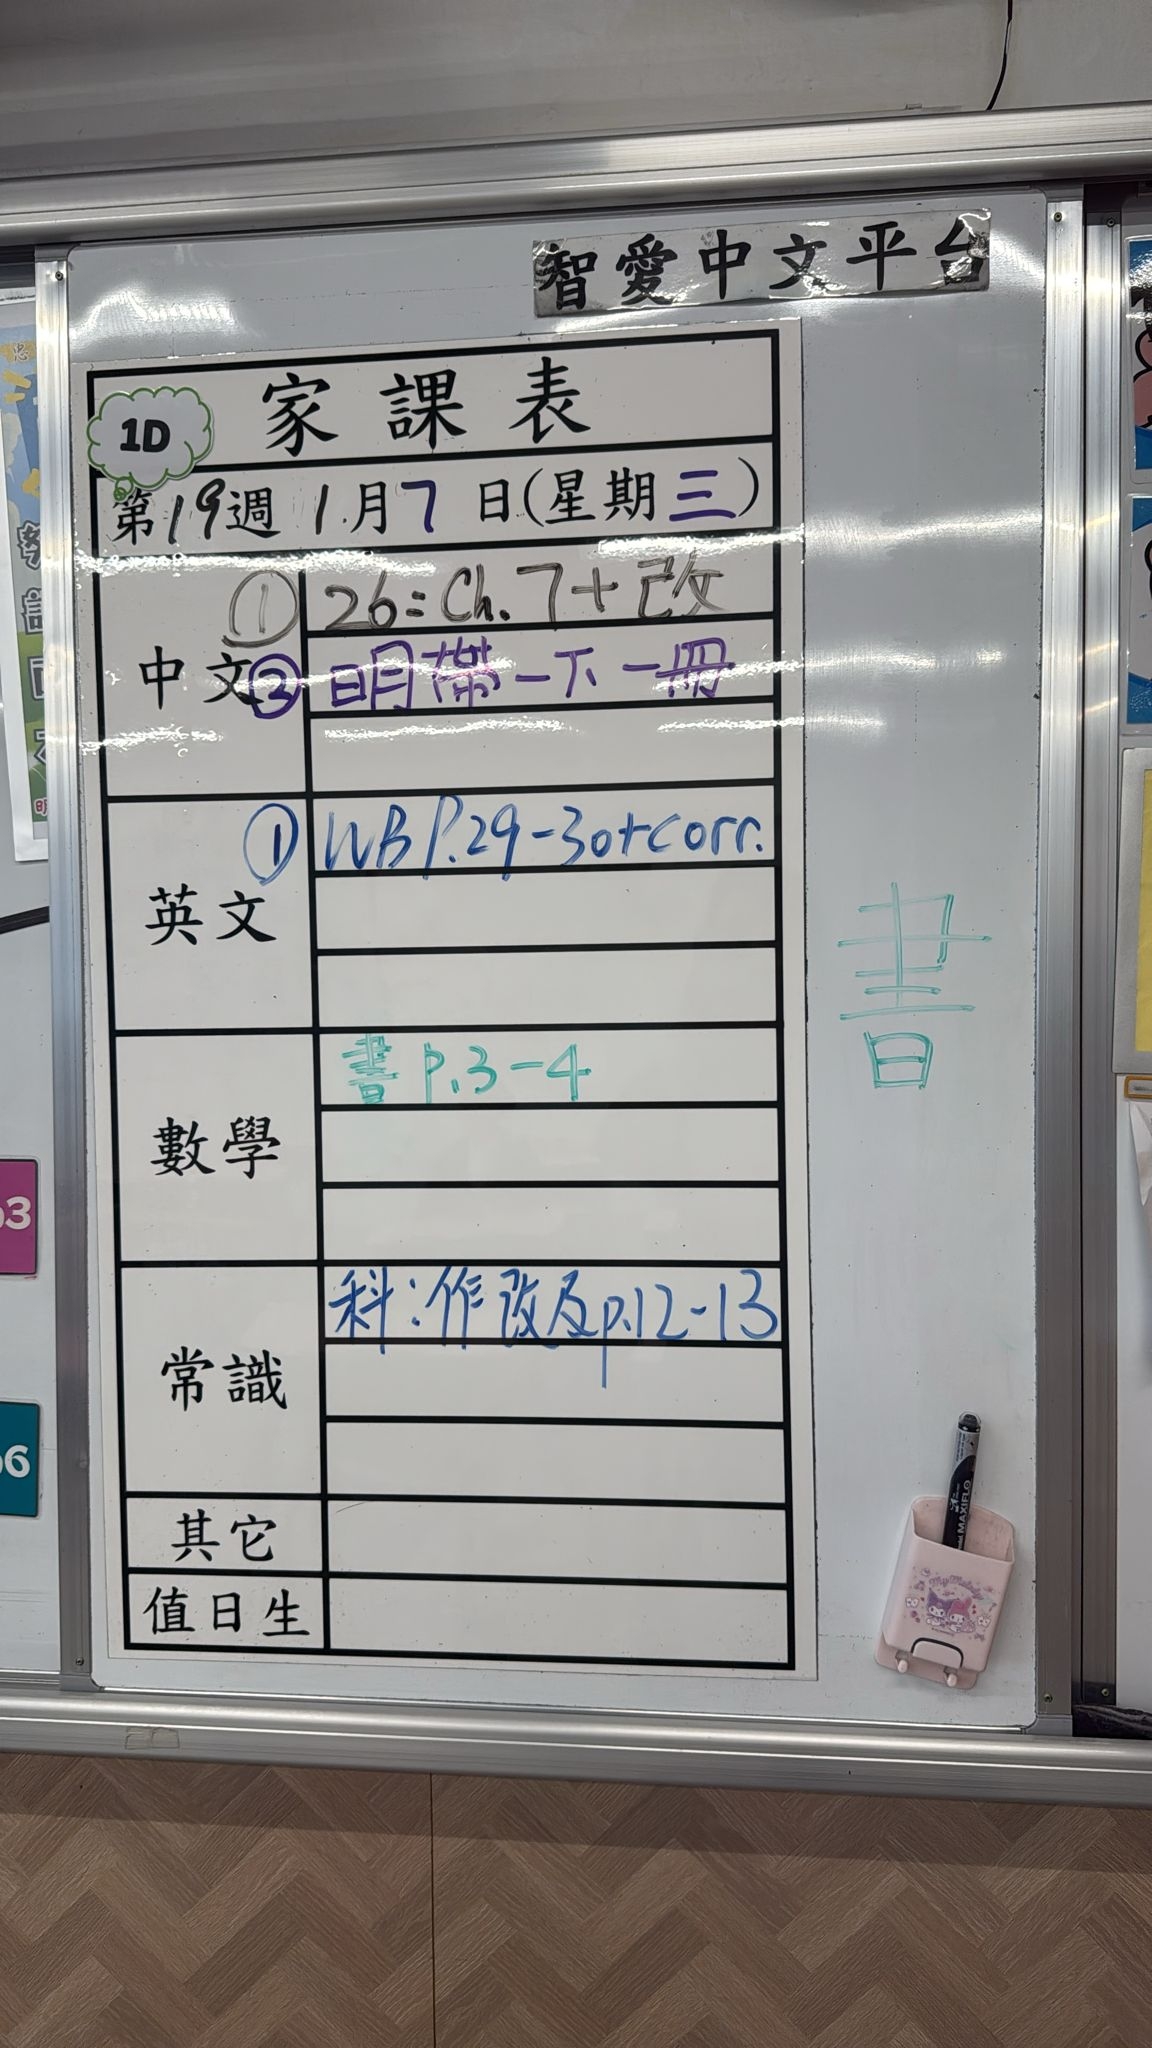 智愛中文平台
家課表
1D
第19週 1月7日(星期三)
中文
① 26=Ch.7+改
② 明帶一下一冊
英文
① WB P.29-30+corr.
數學
書 P.3-4
書
常識
科:作改及p.12-13
其它
值日生
MAXIFLO